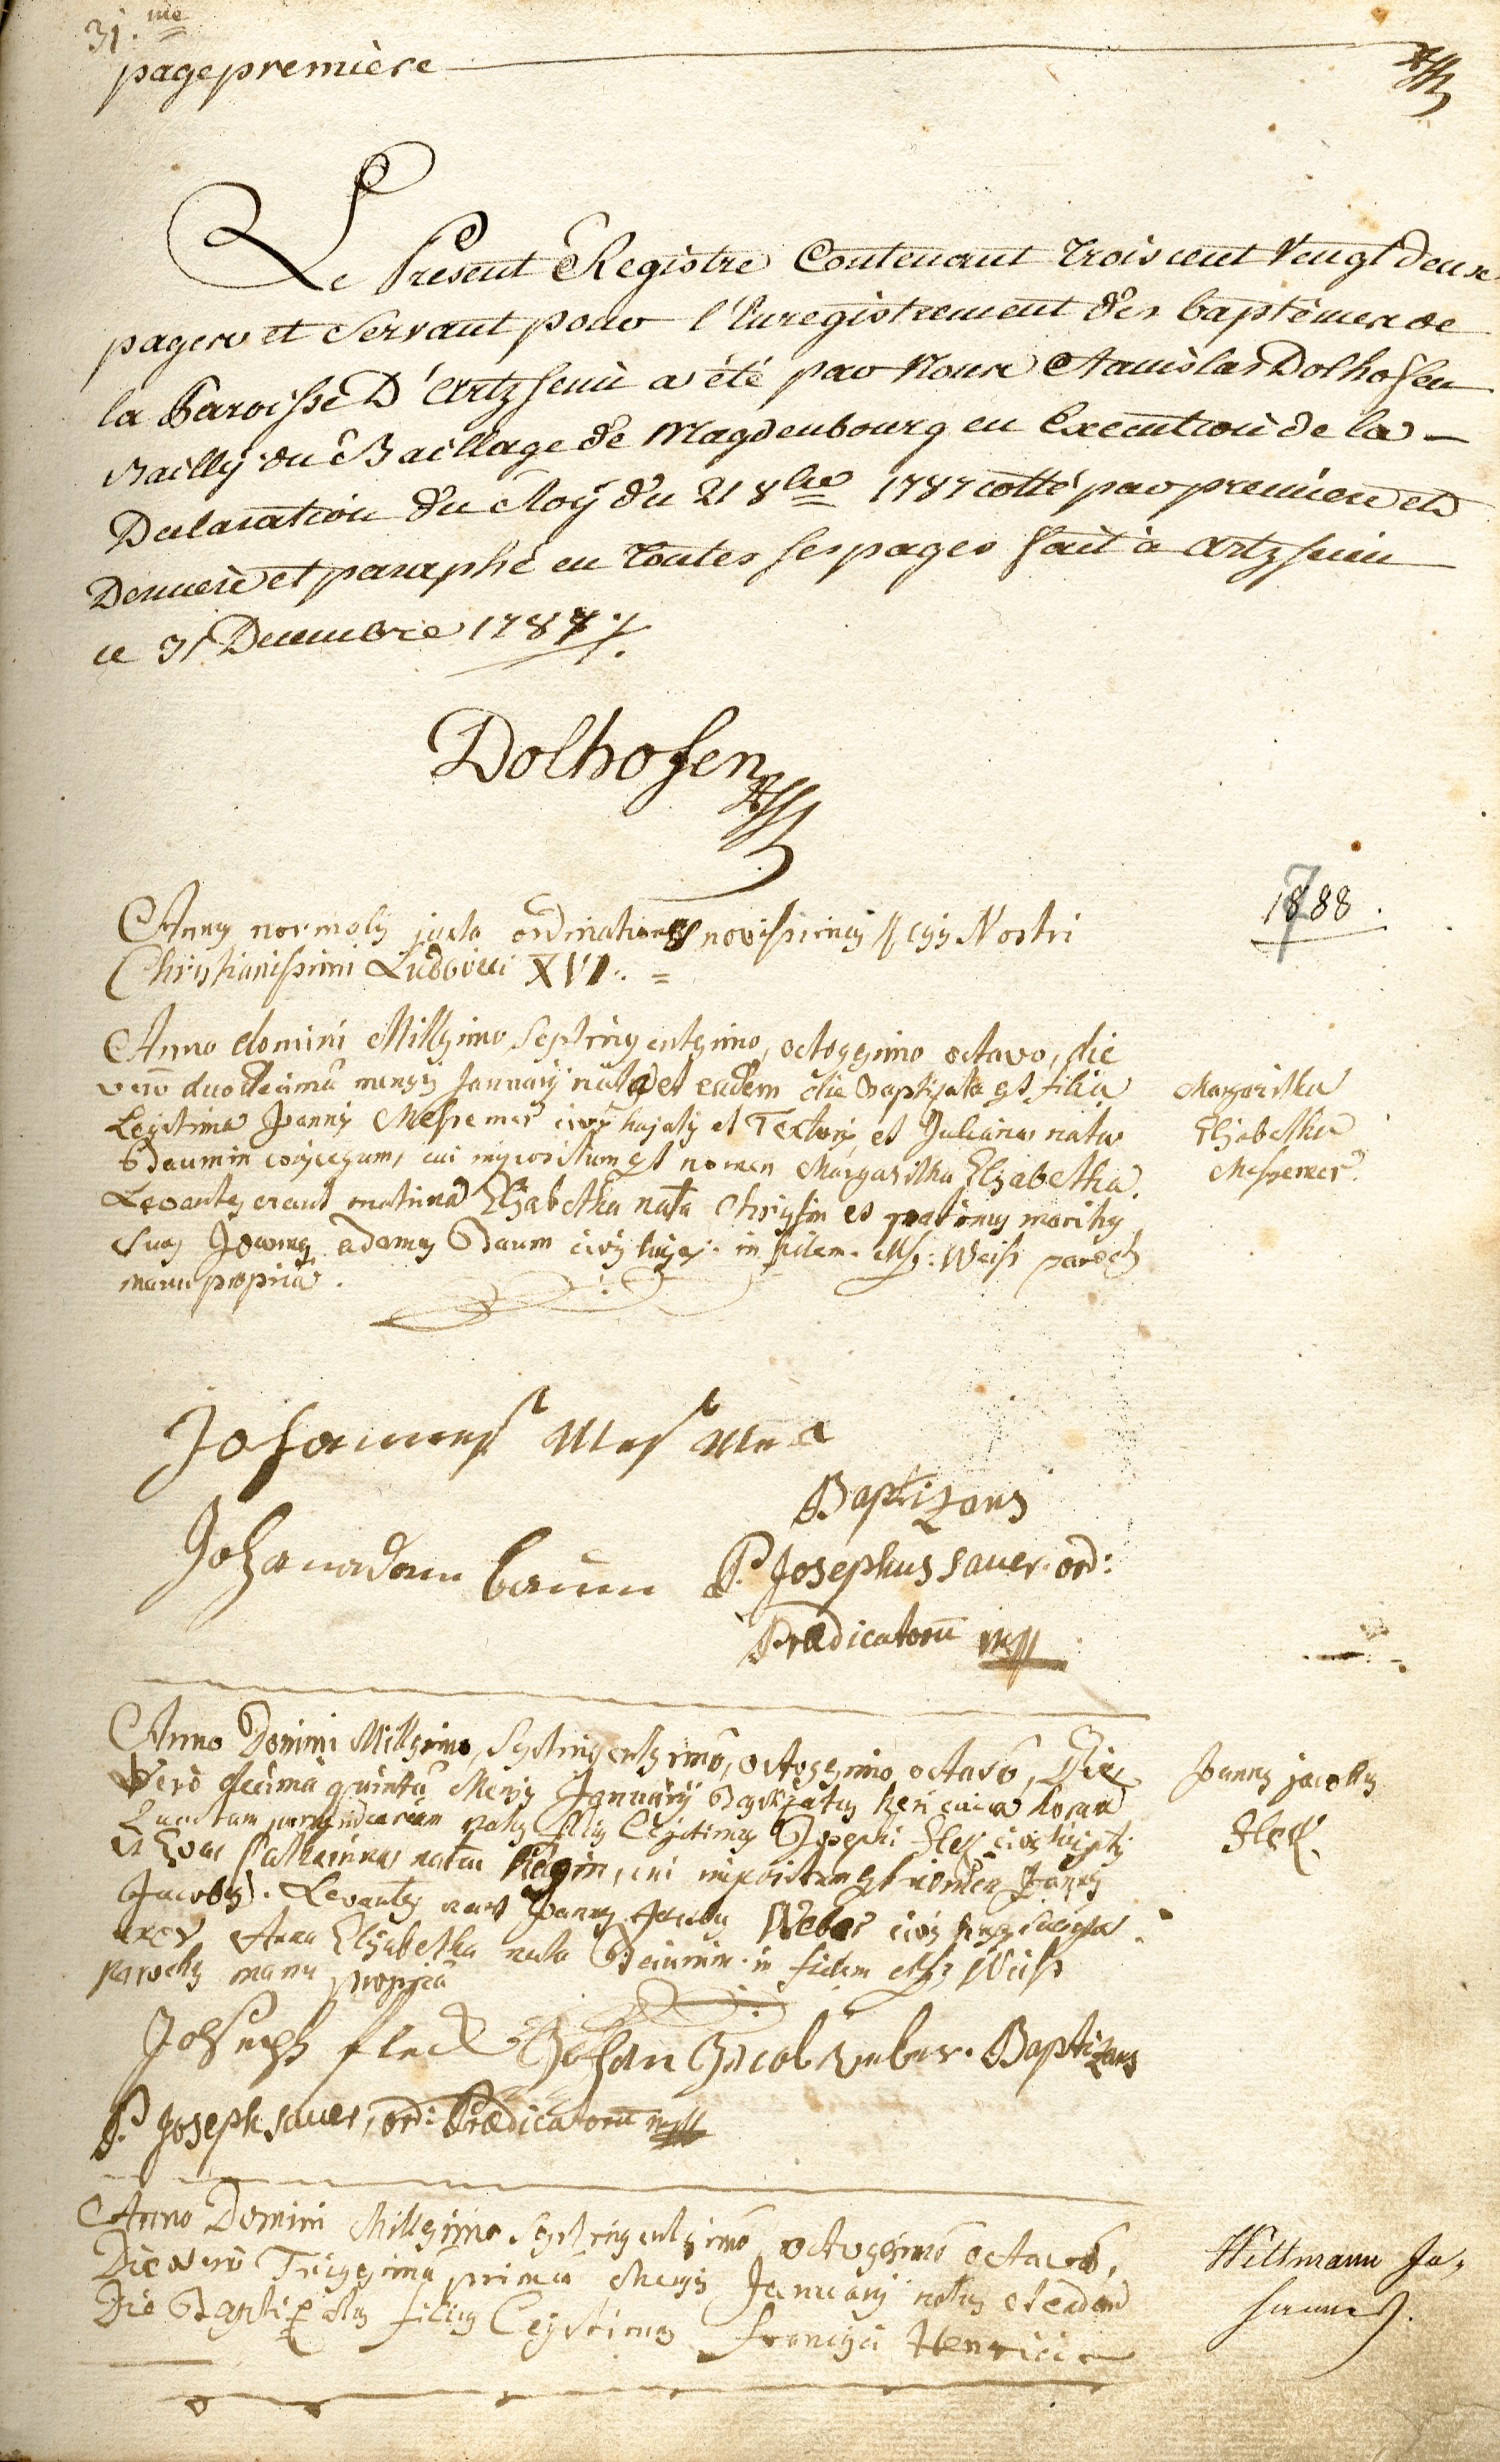 31.me
page première
Le Present Registre Contenant Trois cent Vengt deux
pages et Servant pour l'Enregistrement des baptêmes de
la Paroisse D'Artzheim a été par Nous Stanislas Dolhofen
Bailly du Baillage de Magdenbourg en Execution de la
Declaration du Roÿ du 21 8bre 1787 cotté par premiere et
Derniere et paraphé en Toutes ses pages fait à Artzheim
ce 31 Decembre 1787 ./.
Dolhofen
1788.
Annus normalis juxta ordinationes novissimas Regis Nostri
Christianissimi Ludovici XVI. =
Anno domini Millesimo Septingentesimo, octogesimo octavo, die
vero duodecima mensis Januarij nata et eadem die Baptizata est filia
Legitima Joannis Messemer civis hujatis et Textoris et Julianae natae
Baumin conjugum, cui impositum est nomen Margaritha Elisabetha.
Levantes erant matrina Elisabetha nata et patrinus maritus
suus Joannes adamus Baum civis hujas. in fidem. Weiss paroch
manu propria.
Margaritha
Elisabetha
Messemer.
Johannes Messmer
Johan adam baum
Baptizans
P. Josephus sauer. ord:
Prædicatorū mp
Anno Domini Millesimo, Septingentesimo, octogesimo octavo, Die
Vero decima quinta Mensis Januarij Baptizatus heri circa horam
natus filius Legitimus Josephi Fleck civis
et Catharinae natae cui impositum est nomen Joannes
Jacobus. Levantes erant Joannes Jacobus Weber civis
Anna Elisabetha nata Baumin. in fidem Weiss
parochus manu propria
Joannes jacobus
Fleck.
Joseph fleck Johan Jacob weber. Baptizans
P. Joseph sauer, ord: Prædicatorū mp
Anno Domini Millesimo Septingentesimo octogesimo octavo,
Die vero Trigesima prima Mensis Januarij natus et eadem
Die Baptizatus filius Legitimus Francisci Henrici
Wittmann Jo-
hannes.